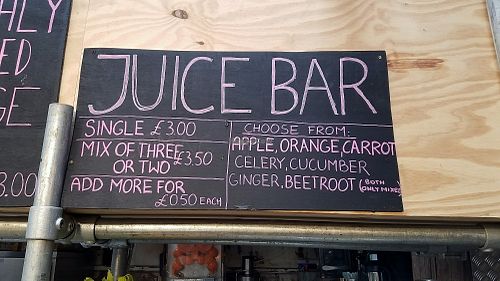 HLY
ED
GE
3.00
JUICE BAR
SINGLE £3.00
MIX OF THREE £3.50
OR TWO
ADD MORE FOR
£0.50 EACH
CHOOSE FROM:
APPLE, ORANGE, CARROT
CELERY, CUCUMBER
GINGER, BEETROOT (BOTH
ONLY MIXED)